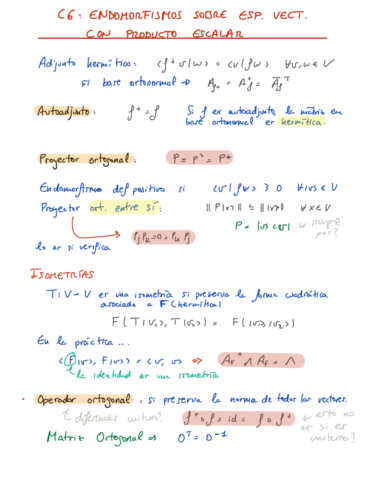 C6: ENDOMORFISMOS SOBRE ESP. VECT.
CON PRODUCTO ESCALAR
Adjunto hermítico: ⟨f⁺v|w⟩ = ⟨v|fw⟩ ∀v,w∈V
si base ortonormal → A_f⁺ = A_f^+ = Ā_f^T
Autoadjunto: f⁺ = f Si f es autoadjunto, la matriz en
base ortonormal es hermítica.
Proyector ortogonal: P = P² = P⁺
Endomorfismo def positivo si ⟨v|fv⟩ ≥ 0 ∀|v⟩∈V
Proyector ort. entre sí: ||P|x⟩|| ≤ ||v⟩|| ∀x∈V
P = |v⟩⟨v| ← siempre pos?
lo es si verifica P_j P_k = 0 = P_k P_j
ISOMETRÍAS
T: V→V es una isometría si preserva la forma cuadrática
asociada a F (hermítica)
F(T|v₁⟩, T|v₂⟩) = F(|v₁⟩,|v₂⟩)
En la práctica...
⟨F|v⟩, F|v⟩⟩ = ⟨v, v⟩ ⇒ A_F⁺ Λ A_F = Λ
la identidad es una isometría
Operador ortogonal: si preserva la norma de todos los vectores.
¿diferencia unitario? f⁺∘f = id = f∘f⁺ ← esto no
es si es
unitario?
Matriz Ortogonal ⇒ O^T = O⁻¹